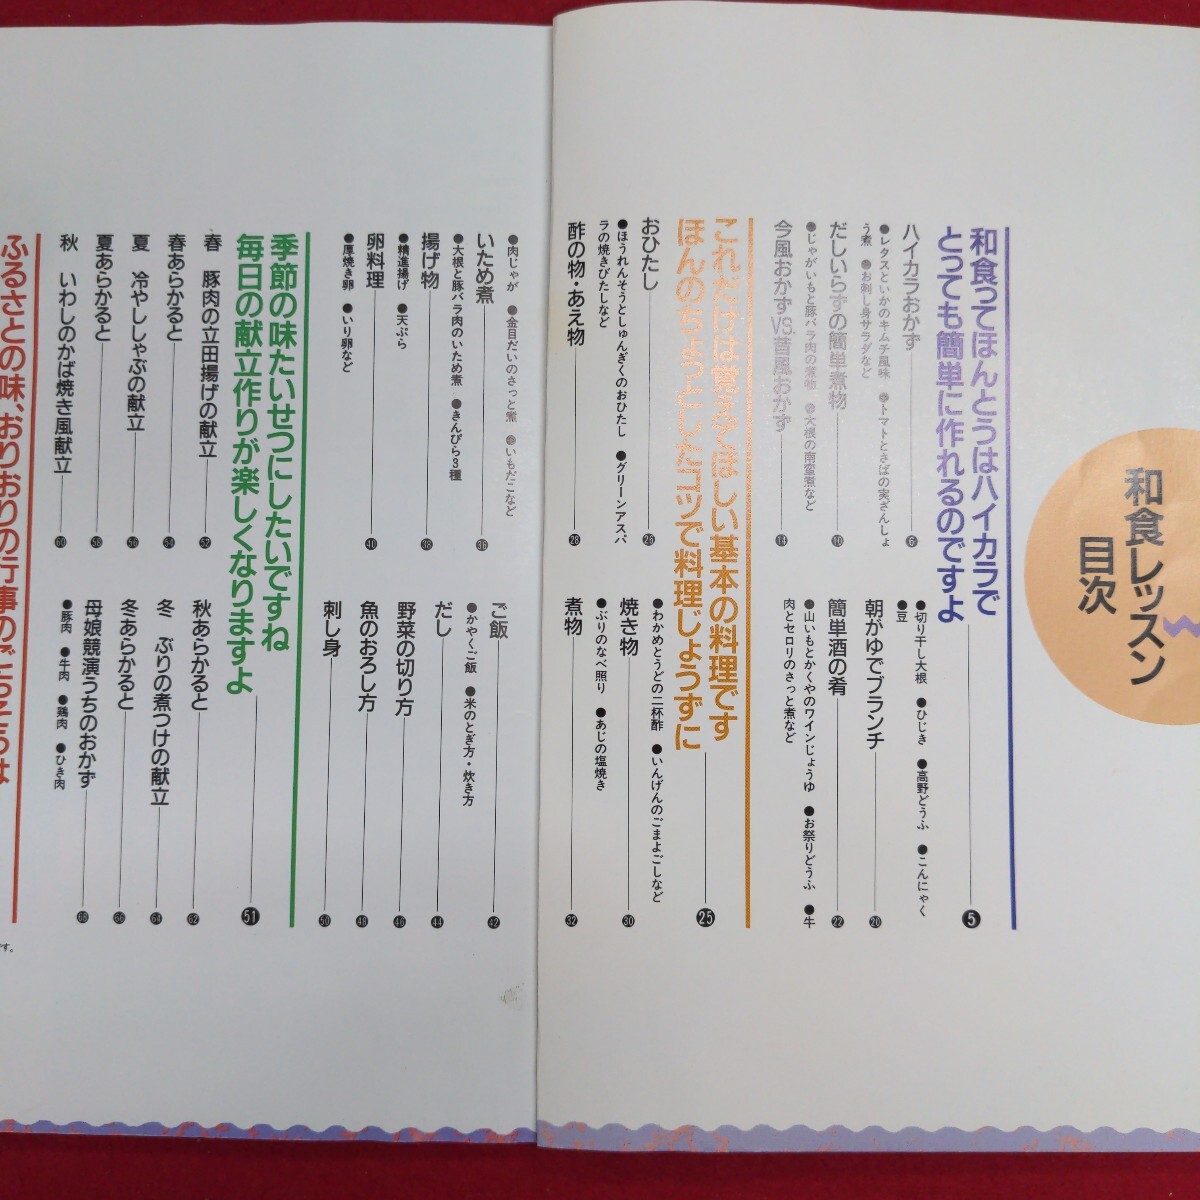 和食レッスン
目次
和食ってほんとうはハイカラで
とっても簡単に作れるのですよ
5
ハイカラおかず 6
●レタスといかのキムチ風味 ●トマトとさばの実ざんしょ
う煮 ●お刺し身サラダなど
だしいらずの簡単煮物 10
●じゃがいもと豚バラ肉の煮物 ●大根の南蛮煮など
今風おかずVS.昔風おかず 14
●切り干し大根 ●ひじき ●高野どうふ ●こんにゃく
●豆
朝がゆでブランチ 20
簡単酒の肴 22
●山いもとかくやのワインじょうゆ ●お祭りどうふ ●牛
肉とセロリのさっと煮など
これだけは覚えてほしい基本の料理です
ほんのちょっとしたコツで料理じょうずに
25
おひたし 26
●ほうれんそうとしゅんぎくのおひたし ●グリーンアスパ
ラの焼きびたしなど
酢の物・あえ物 28
●わかめとうどの二杯酢 ●いんげんのごまよごしなど
焼き物 30
●ぶりのなべ照り ●あじの塩焼き
煮物 32
●肉じゃが ●金目だいのさっと煮 ●いもだこなど
いため煮 36
●大根と豚バラ肉のいため煮 ●きんぴら3種
揚げ物 38
●精進揚げ ●天ぷら
卵料理 40
●厚焼き卵 ●いり卵など
ご飯 42
●かやくご飯 ●米のとぎ方・炊き方
だし 44
野菜の切り方 46
魚のおろし方 48
刺し身 50
季節の味たいせつにしたいですね
毎日の献立作りが楽しくなりますよ
51
春 豚肉の立田揚げの献立 52
春あらかると 54
夏 冷やししゃぶの献立 56
夏あらかると 58
秋 いわしのかば焼き風献立 60
秋あらかると 62
冬 ぶりの煮つけの献立 64
冬あらかると 66
母娘競演うちのおかず 68
●豚肉 ●牛肉 ●鶏肉 ●ひき肉
ふるさとの味、おりおりの行事のごちそうは
です。